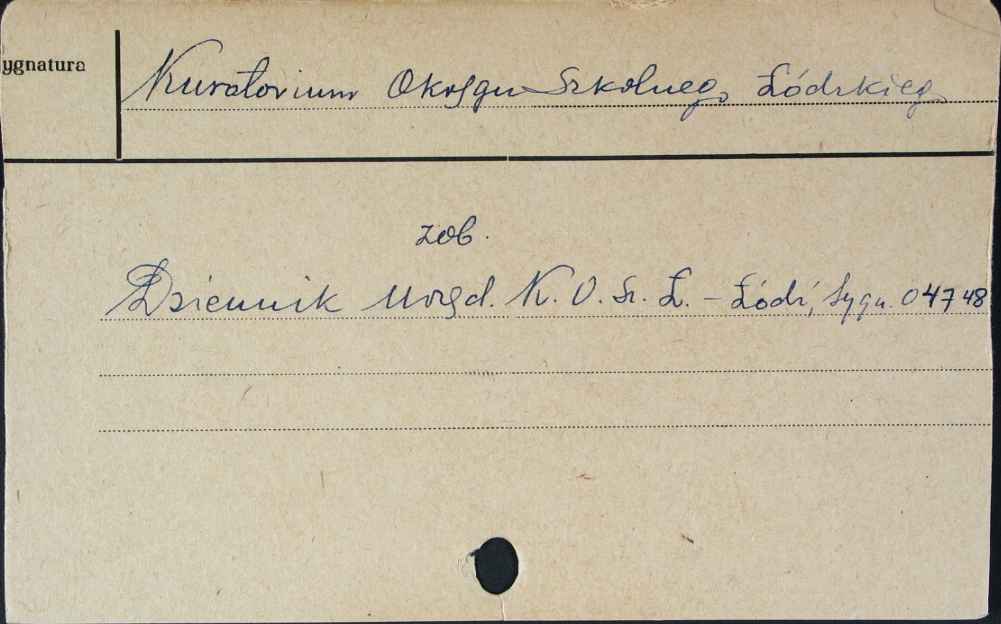 ygnatura
Kuratorium Okręgu Szkolnego Łódzkiego
zob.
Dziennik Urzęd. K. O. Sz. Ł. - Łódź, Sygn. 04748